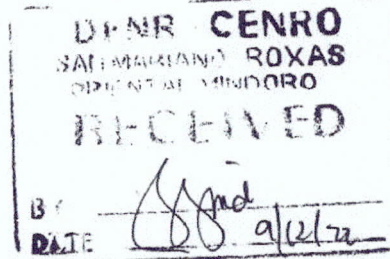 DENR CENRO
SAN MARIANO ROXAS
ORIENTAL MINDORO
RECEIVED
BY
DATE 9/12/22